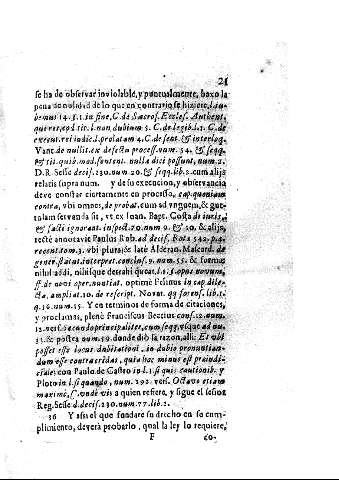 21
se ha de observar inviolablê, y puntualmente, baxo la
pena de nulidad de lo que en contrario se hiziere, l. iu-
bemus 14. §. 1. in fine, C. de Sacros. Eccles. Authent.
qui res, eod. tit. l. non dubium 5. C. de legib. l. 1. C. de
execut. rei iudic. l. prolatam 4. C. de sent. & interloq.
Vant. de nullit. ex defectu process. num. 54. & seqq.
& tit. quib. mod. sentent. nulla dici possunt, num. 2.
D. R. Sesse decis. 230. num. 20. & seqq. lib. 2. cum alijs
relatis supra num. y de su execucion, y observancia
deve constar ciertamente en processo, cap. quoniam
contra, vbi omnes, de probat. cum ad vnguem, & gut-
tulam servanda sit, vt ex Ioan. Bapt. Costa de iuris,
& facti ignorant. inspect. 70. num. 9. & 20. & alijs,
rectè annotavit Paulus Rub. ad decis. Rota 542. p. 4.
recent. tom. 3. vbi plura; & latè Alderan. Mascard. de
gener. statut. interpret. conclus. 9. num. 55. & formae
nihil addi, nihilque detrahi queat, l. 1. §. opus novum,
ff. de novi oper. nuntiat. optimè Felinus in cap. dile-
cta, ampliat. 20. de rescript. Novar. qq. forens. lib. 1.
q. 16. num. 15. Y en terminos de forma de citaciones,
y proclamas, plenè Franciscus Beccius cons. 12. num.
12. vers. secundo principaliter, cum seqq. vsque ad nu.
31. & postea num. 59. donde diò la razon, alli: Et vbi
posset esse locus dubitationi, in dubio pronuntian-
dum esset contra citatus, quia hoc minus est praeiudi-
ciale: con Paulo de Castro in l. 1. si quis cautionib. y
Ploto in l. si quando, num. 292. vers. Octavo etiam
maximè, C. vnde vi: a quien refiere, y sigue el señor
Reg. Sesse d. decis. 230. num. 77. lib. 2.
36 Y assi el que fundare su drecho en su cum-
plimiento, deverà probarlo, qual la ley lo requiere,
F co-